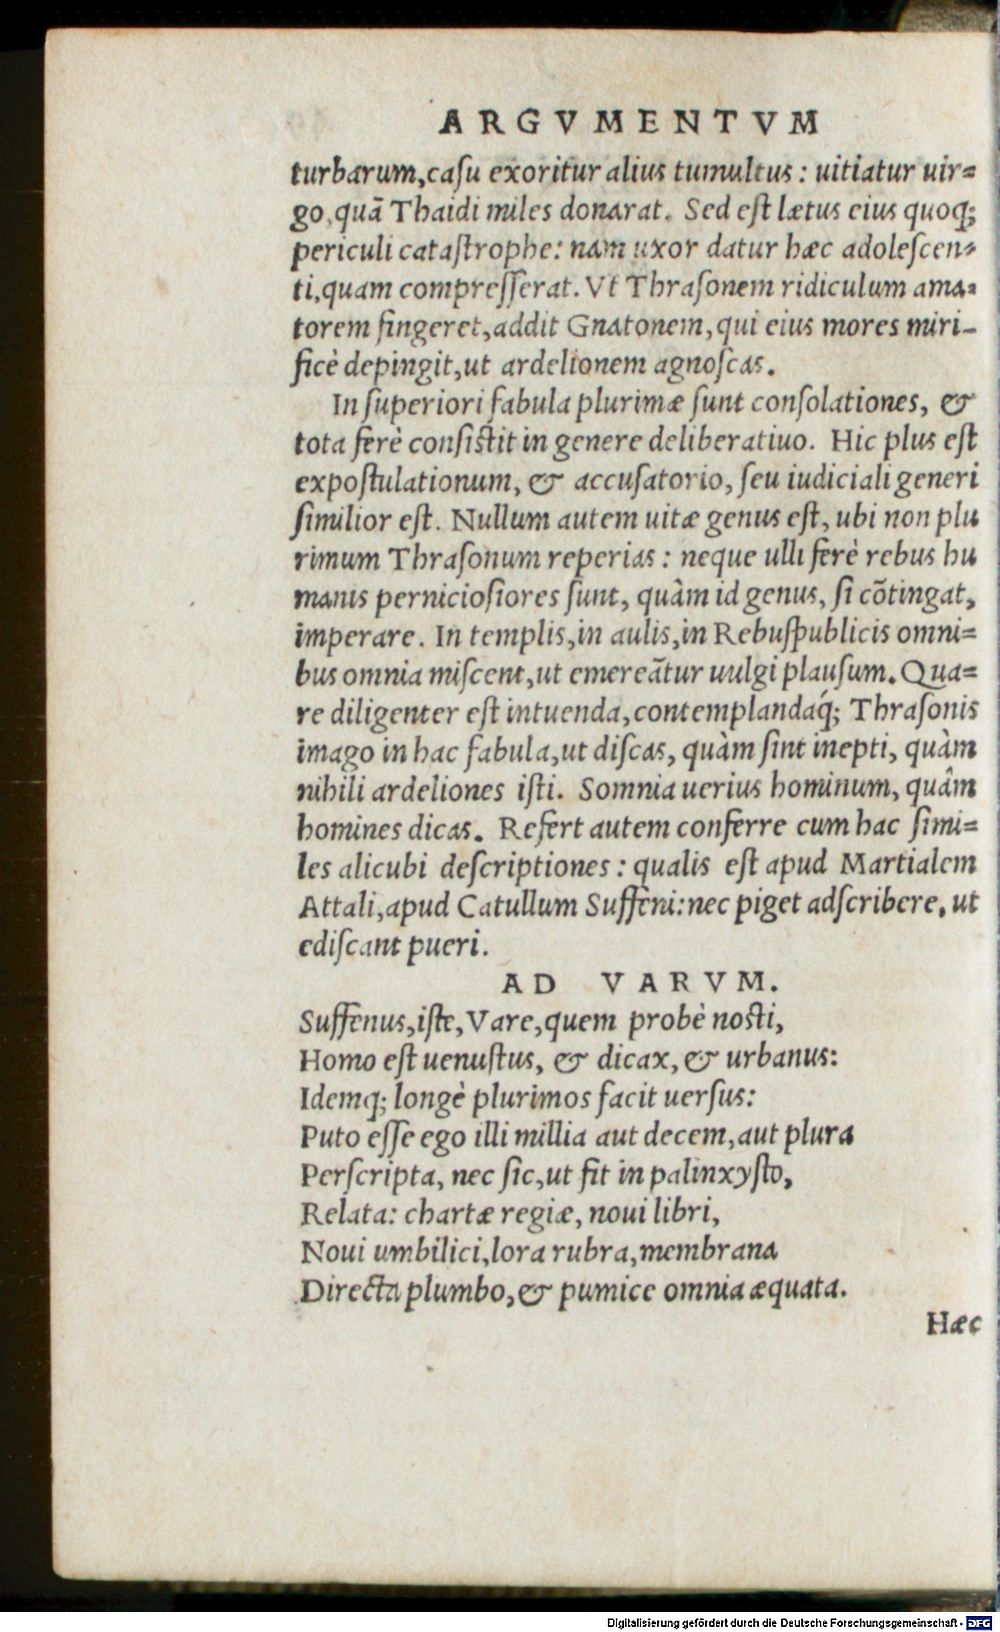 ARGVMENTVM
turbarum,caſu exoritur alius tumultus: uitiatur uir=
go,quā Thaidi miles donarat. Sed eſt lætus eius quoq;
periculi cataſtrophe: nam uxor datur hæc adoleſcen=
ti,quam compreſſerat. Vt Thraſonem ridiculum ama=
torem fingeret,addit Gnatonem,qui eius mores miri-
ficè depingit,ut ardelionem agnoſcas.
In ſuperiori fabula plurimæ ſunt conſolationes, &
tota ferè conſiſtit in genere deliberatiuo. Hic plus eſt
expoſtulationum, & accuſatorio, ſeu iudiciali generi
ſimilior eſt. Nullum autem uitæ genus eſt, ubi non plu
rimum Thraſonum reperias: neque ulli ferè rebus hu
manis pernicioſiores ſunt, quàm id genus, ſi cõtingat,
imperare. In templis,in aulis,in Rebuſpublicis omni=
bus omnia miſcent,ut emereātur uulgi plauſum. Qua=
re diligenter eſt intuenda,contemplandaq́; Thraſonis
imago in hac fabula,ut diſcas, quàm ſint inepti, quàm
nihili ardeliones iſti. Somnia uerius hominum, quâm
homines dicas. Refert autem conferre cum hac ſimi=
les alicubi deſcriptiones: qualis eſt apud Martialem
Attali,apud Catullum Suffeni:nec piget adſcribere, ut
ediſcant pueri.
AD VARVM.
Suffenus,iſte,Vare,quem probè noſti,
Homo eſt uenuſtus, & dicax, & urbanus:
Idemq; longè plurimos facit uerſus:
Puto eſſe ego illi millia aut decem,aut plura
Perſcripta, nec ſic,ut fit in palinxyſto,
Relata: chartæ regiæ, noui libri,
Noui umbilici,lora rubra,membrana
Directa plumbo,& pumice omnia æquata.
Hæc
Digitalisierung gefördert durch die Deutsche Forschungsgemeinschaft - DFG